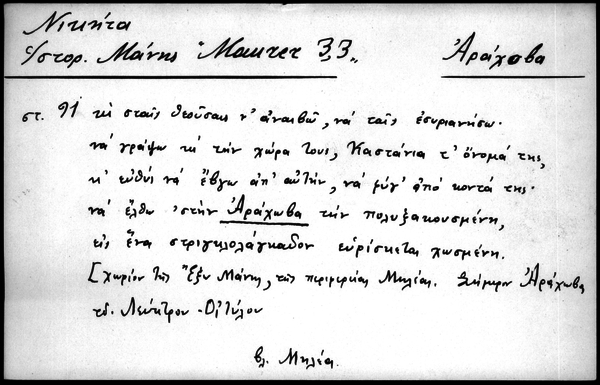 Νικήτα
ἱστορ. Μάνης "Maurer 33„ Ἀράχοβα
στ. 91 κὶ σταῖς θεούσαις ν' ἀναιβῶ, νὰ ταῖς ἐσυριανήσω·
νὰ γράψω κὶ τὴν χώρα τους, Καστάνια τ' ὄνομά της,
κ' εὐθὺς νὰ ἔβγω ἀπ' αὐτὴν, νὰ φύγ' ἀπὸ κοντά της·
νὰ ἔλθω 'στὴν Ἀράχωβα τὴν πολυξακουσμένη,
εἰς ἕνα στριγκλολάγκαδον εὑρίσκεται χωσμένη.
[χωρίον τῆς Ἔξω Μάνης, τῆς περιφερείας Μηλέας. Σήμερον Ἀράχωβα
τδ. Λεύκτρον - Οἰτύλου
βλ. Μηλέα.